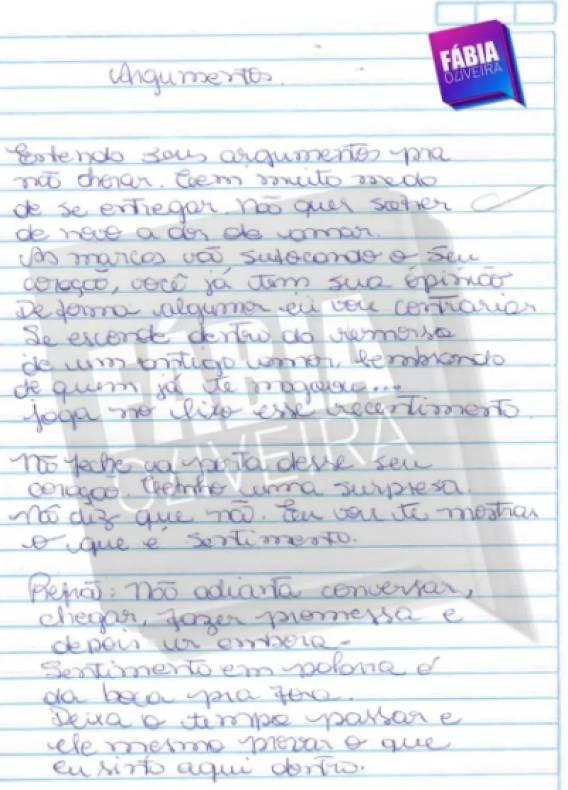 FÁBIA
OLIVEIRA
Argumentos.
Entendo seus argumentos pra
não chorar. Tem muito medo
de se entregar. Não quer sofrer
de novo a dor de amar.
As marcas vão sufocando o seu
coração, você já tem sua opinião
De forma alguma eu vou contrariar
Se esconde dentro do remorso
de um antigo amor, lembrando
de quem já te magoou...
joga no lixo esse recentimento.
Não feche a porta desse seu
coração. Tenho uma surpresa
Não diz que não. Eu vou te mostrar
o que é sentimento.
Refrão: Não adianta conversar,
chegar, fazer promessa e
depois ir embora.
Sentimento em palavra é
da boca pra fora.
Deixa o tempo passar e
ele mesmo provar o que
eu sinto aqui dentro.
FÁBIA
OLIVEIRA